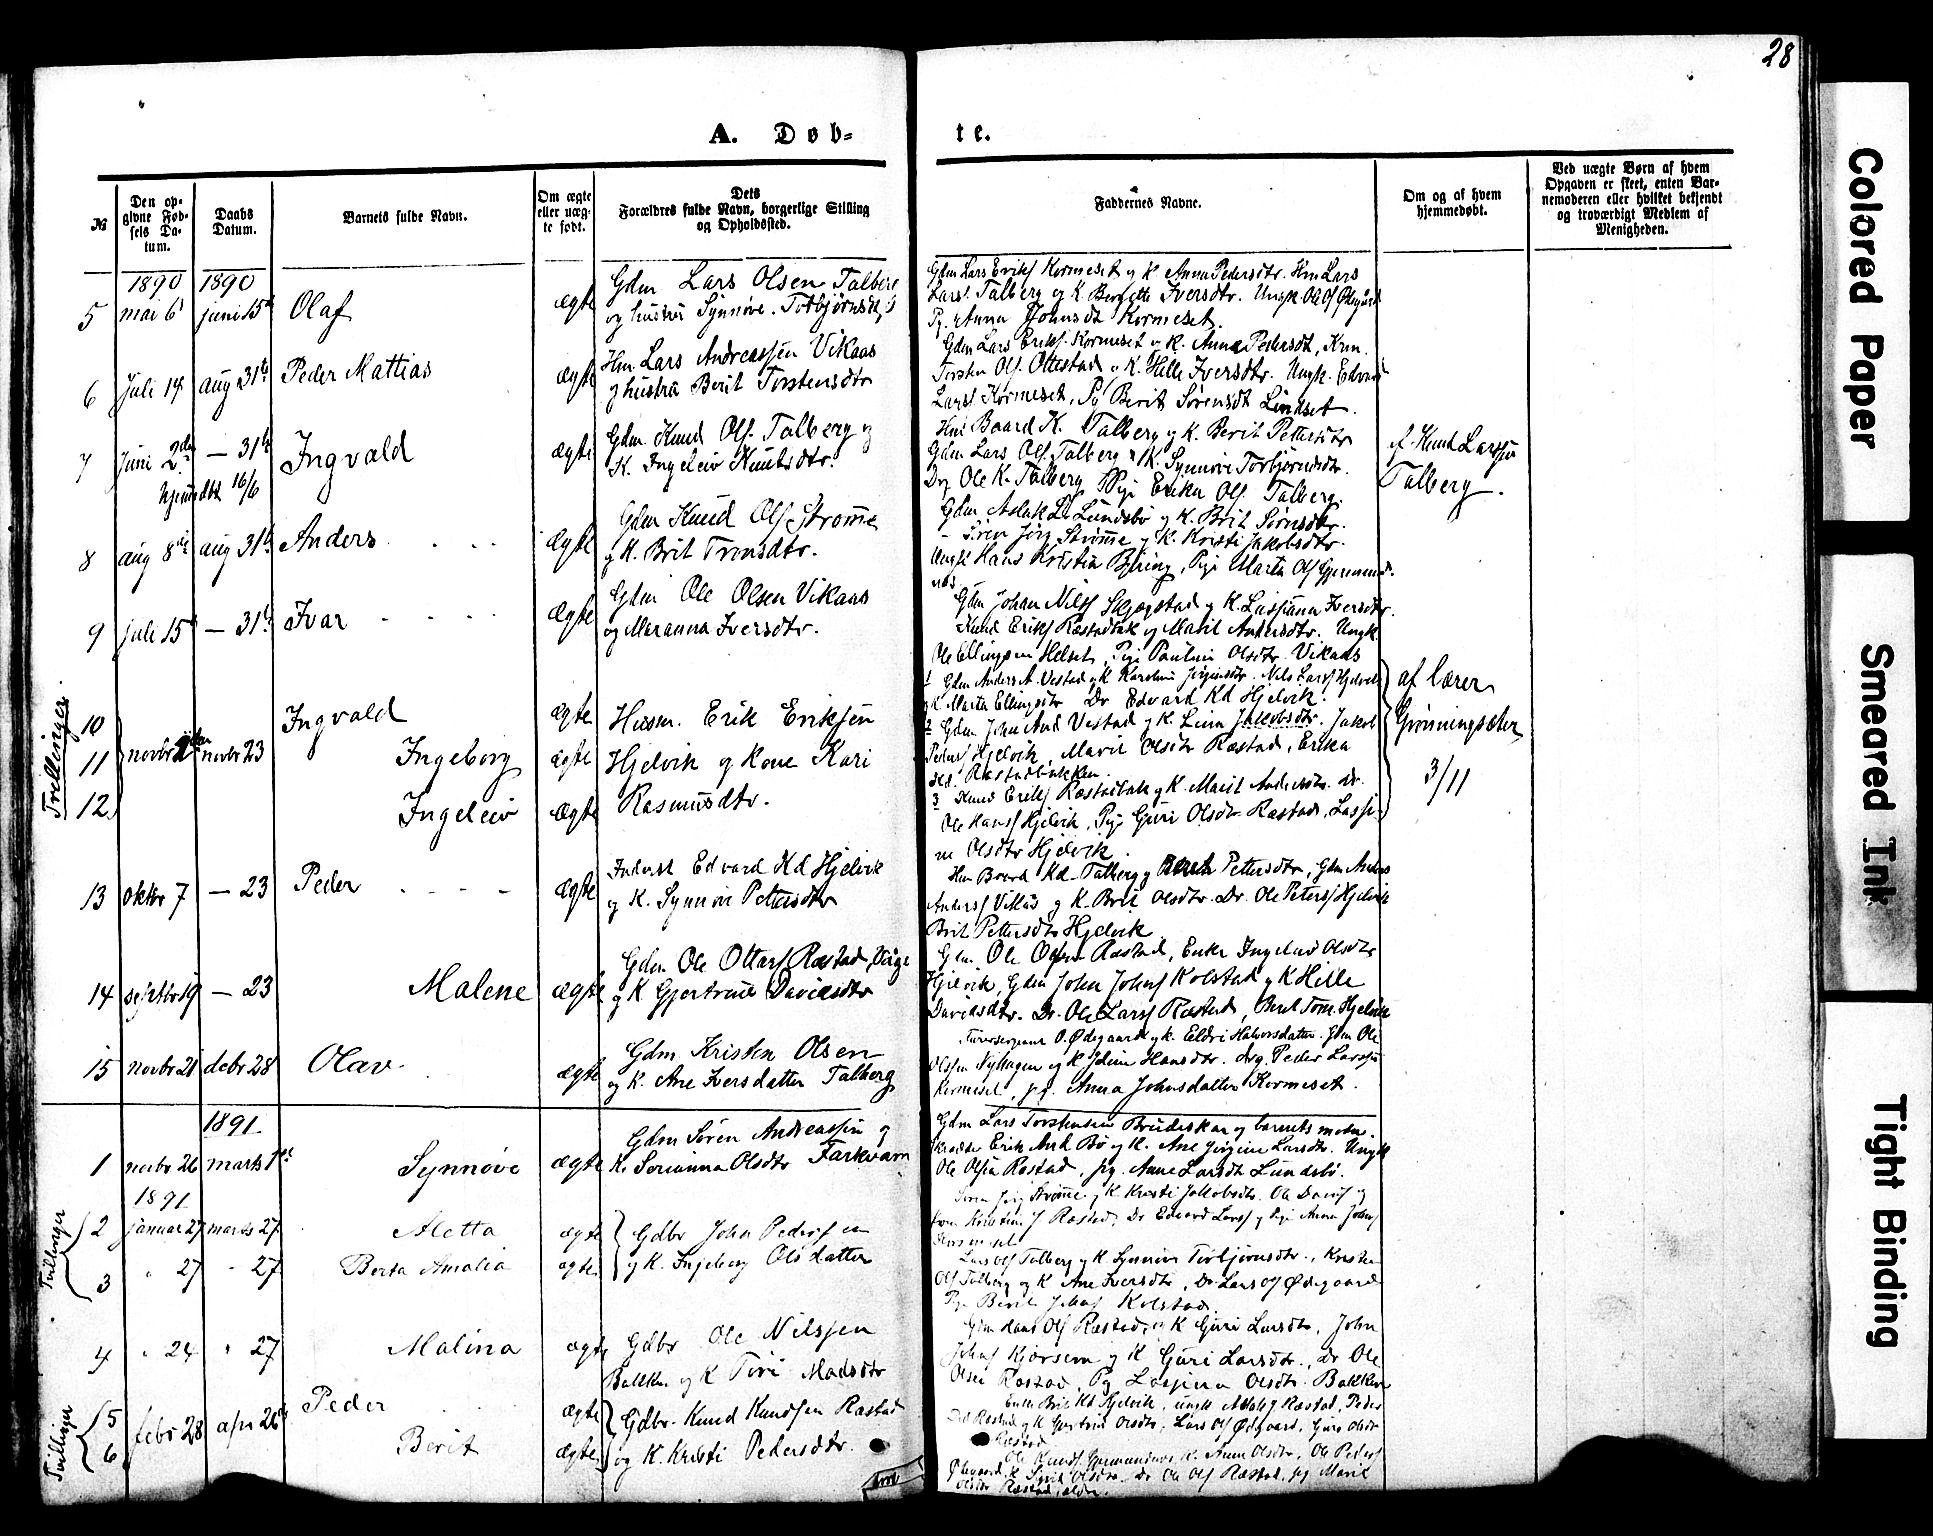 28
A. Døb-
te.
№
Den op-
givne Fød-
sels Da-
tum.
Daabs
Datum.
Barnets fulde Navn.
Om ægte
eller uæg-
te født.
Dets
Forældres fulde Navn, borgerlige Stilling
og Opholdssted.
Faddernes Navne.
Om og af hvem
hjemmedøbt.
Ved uægte Børn af hvem
Opgaven er skeet, enten Bar-
nemoderen eller hvilket bekjendt
og troværdigt Medlem af
Menigheden.
1890 1890
5 mai 6 juni 15 Olaf ægte
Gdm Lars Olsen Talberg
og hustru Synnøve Torbjørnsdt
Gdm Lars Eriks Kormeset og K Anna Pedersdtr. Hm Lars
Lars. Talberg og K. Beretta Iversdtr. Ungk Ol Ols Ødegård
Pg. Anna Johnsdt Kormeset.
6 Juli 14 aug 31t Peder Mattias ægte
Hm Lars Andreassen Vikaas
og hustru Berit Torstensdtr
Gdm Lars Eriks. Kormeset og K. Anna Pedersdt,
Torsten Ols. Ottestad og K. Helle Iversdtr. Ungk. Edvard
Lars Kormeset, Pg Berit Sørensdt Lindset.
7 Juni 2den — 31t Ingvald ægte
hjemdbt 16/6
Gdm. Knud Ols. Talberg og
K. Ingeleiv Knutsdtr.
Hm Baard K. Talberg og K. Berit Pettersdtr
Gdm Lars Ols. Talberg og K. Synnøve Torbjørnsdtr.
Drg Ole K. Talberg Pige Erika Ols. Talberg.
af Knud Larssen
Talberg.
8 aug 8de aug 31t Anders ægte
Gdm Knud Ols Strømme
og K. Brit Trensdtr.
Gdm Aslak L. Lundsbø og K. Brit Sørnsdtr.
Søren Jørg Strømme og K. Kristi Jakobsdtr.
Ungk Hans Kristian Bjering, Pige Marta Ols Gjermund-
nes
9 juli 15 — 31t Ivar ægte
Gdm Ole Olsen Vikaas
og Maranna Iversdtr.
Gdm Johan Nils Skjegstad og K. Lassiana Iversdtr.
Knud Eriks Ræstadbak og Marit Andersdtr. Ungk
Ole Ellingsen Helset, Pige Pauline Olsdtr Vikaas
Trellinger
10 Ingvald ægte
11 novbr novbr 23 Ingeborg ægte
12 Ingeleiv ægte
Husm. Erik Eriksen
Hjelvik og kone Kari
Rasmusdtr.
1 Gdm Anders A. Vestad og K Karoline Jørgensdtr. Nils Lars Hjelvik
og K Marta Ellingsdtr Dr Edvard Kd Hjelvik.
2 Gdm John And Vestad og K. Lina Jakobsdtr. Jakob
Peders Hjelvik, Marit Olsdtr Ræstad, Erika
Kd. Ræstadbakken.
3 Knud Eriks Ræstadbak og K. Marit Andersdtr. Dr.
Ole Hans Hjelvik, Pige Guri Olsdtr Ræstad, Lassi-
ne Olsdtr Hjelvik.
af lærer
Grønningsæter
3/11
13 oktbr 7 — 23 Peder ægte
Inderst Edvard Kd Hjelvik
og K. Synnøve Pettersdtr
Hm Baard Kd Talberg og Berit Pettersdtr, Gdm Anders
Anders Vikås og K. Brit Olsdtr. Dr. Ole Peters Hjelvik
Brit Pettersdtr Hjelvik
14 septbr 19 — 23 Malene ægte
Gdm Ole Ottars Ræstad, Vaage
og K Gjertrud Davidsdtr
Gdm. Ole Olsen Ræstad, Enke Ingeleiv Olsdtr
Hjelvik, Gdm John Johns Kolstad og K Helle
Davidsdtr. Dr. Ole Lars Ræstad, Berit Tom. Hjelvik
15 novbr 21 debr 28 Olav ægte
Gdm Kristen Olsen
og K. Ane Iversdatter Talberg
O. Ødegaard og K. Eldri Halvorsdatter. Gdm Ole
Olssen Nyhagen og K Jdine Hansdtr. drg. Peder Larssen
Kormeset, pg. Anna Johnsdatter Kormeset.
1891
1 novbr 26 marts 1st Synnøve ægte
Gdm Søren Andreassen og
K. Serianna Olsdtr Farkvam
Gdm Lars Torstensen Brudeskar og barnets moder.
Skrædder Erik And Bø og K. Ane Jørgine Larsdtr. Ungk
Ole Olsen Ræstad, pg. Anne Larsdt Lundsbø.
1891
Tvillinger
2 januar 27 marts 27 Aletta ægte
3 " 27 " 27 Berta Amalia ægte
Gdbr John Pedersen
og K. Ingeborg Olsdatter
Søren Jørg Strømme og K Kristi Jakobsdtr. Ole Davids og
Kone Kristine J Ræstad, Dr Edvard Lars og Pige Anna Johns
Kormeset
Lars Ols Talberg og K Synnøve Torbjørnsdtr., Kristen
Ols Talberg og K Ane Iversdtr, Dr Lars Ols Ødegaard
Pige Berit Johns Kolstad.
4 " 24 " 27 Malina ægte
Gdbr Ole Nilssen
Bakken og K Tiri Madsdtr
Gdm Hans Ols Ræstad, og K Guri Larsdtr, John
Johns Kjørsem og K Guri Larsdtr., Dr Ole
Olsen Ræstad, Pg Lassina Olsdtr. Bakken
Tvillinger
5 febr 28 apr 26 Peder ægte
6 Berit ægte
Gdbr. Knud Knudsen Ræstad
og K. Kristi Pedersdtr.
Enke Brit Kd Hjelvik, ungk Aslak Ræstad, Peder
Dd Ræstad og K Gjertrud Olsdtr, Lars Ols Ødegaard, Guri Olsdt
Ræstad
Ole Knuds. Gjermundnes, K. Anne Olsdtr, Ole Peders
Ødegaard, K. Synø Olsdtr. Dr Ole Ols Ræstad, pg Marit
Olsdtr Ræstad, ældre.
Colored Paper
Smeared Ink
Tight Binding